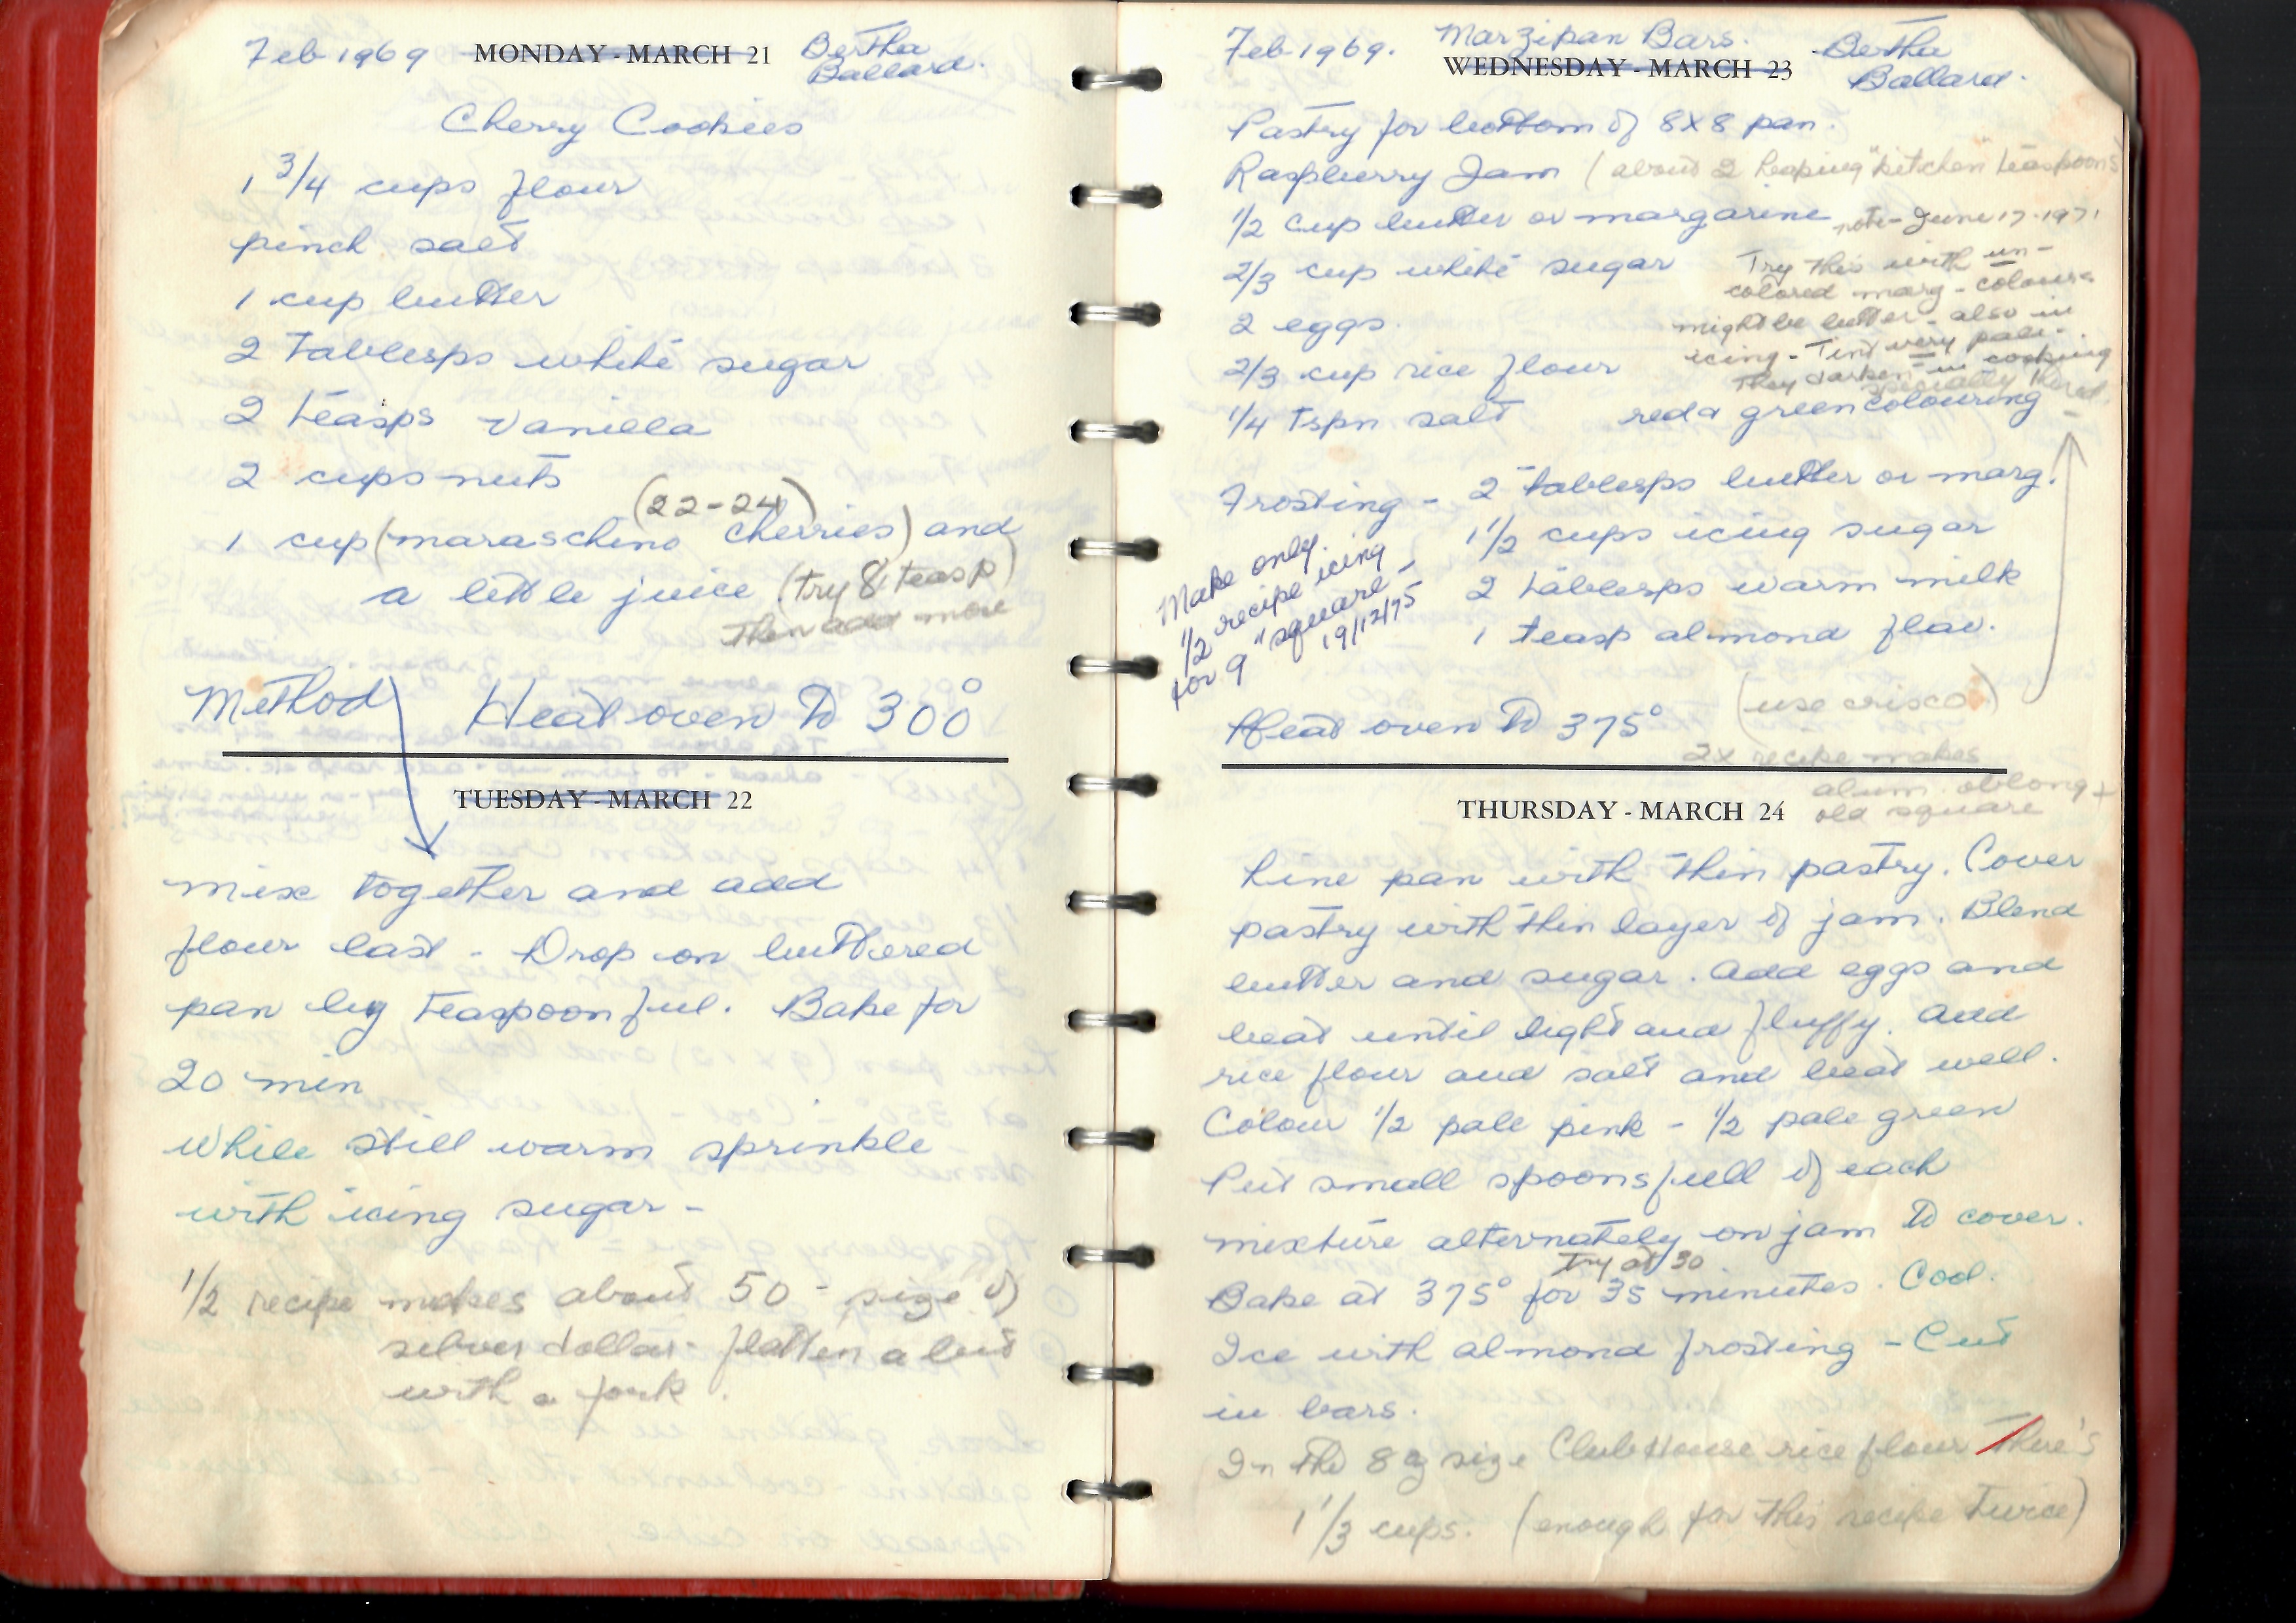 Feb 1969 MONDAY - MARCH 21 Bertha
Ballard.
Cherry Cookies
1 3/4 cups flour
pinch salt
1 cup butter
2 tablesps white sugar
2 teasps vanilla
2 cups nuts
(22-24)
1 cup (maraschino cherries) and
a little juice (try 8 teasp)
then add more
Method Heat oven to 300°
TUESDAY - MARCH 22
mix together and add
flour last - Drop on buttered
pan by teaspoonful. Bake for
20 min
While still warm sprinkle
with icing sugar -
1/2 recipe makes about 50 - size of
silver dollar - flatten a bit
with a fork.
Feb 1969. Marzipan Bars. Bertha
WEDNESDAY - MARCH 23 Ballard.
Pastry for bottom of 8x8 pan.
Raspberry Jam (about 2 heaping "kitchen" teaspoons)
1/2 cup butter or margarine note - June 17-1971
2/3 cup white sugar Try this with un-
colored marg - colours
2 eggs. might be better - also in
icing - Tint very pale.
2/3 cup rice flour They darken in cooking
specially the red.
1/4 tspn salt red & green colouring
Frosting - 2 tablesps butter or marg.
1 1/2 cups icing sugar
2 tablesps warm milk
1 teasp almond flav.
Make only
1/2 recipe icing
for 9" square -
19/12/75
(use crisco)
Heat oven to 375°
2x recipe makes
alum. oblong +
THURSDAY - MARCH 24 old square
Line pan with thin pastry. Cover
pastry with thin layer of jam. Blend
butter and sugar. Add eggs and
beat until light and fluffy. Add
rice flour and salt and beat well.
Colour 1/2 pale pink - 1/2 pale green
Put small spoonsfull of each
mixture alternately on jam to cover.
try at 30
Bake at 375° for 35 minutes. Cool.
Ice with almond frosting - Cut
in bars.
In the 8 oz size Club House rice flour there's
1 1/3 cups. (enough for this recipe twice)